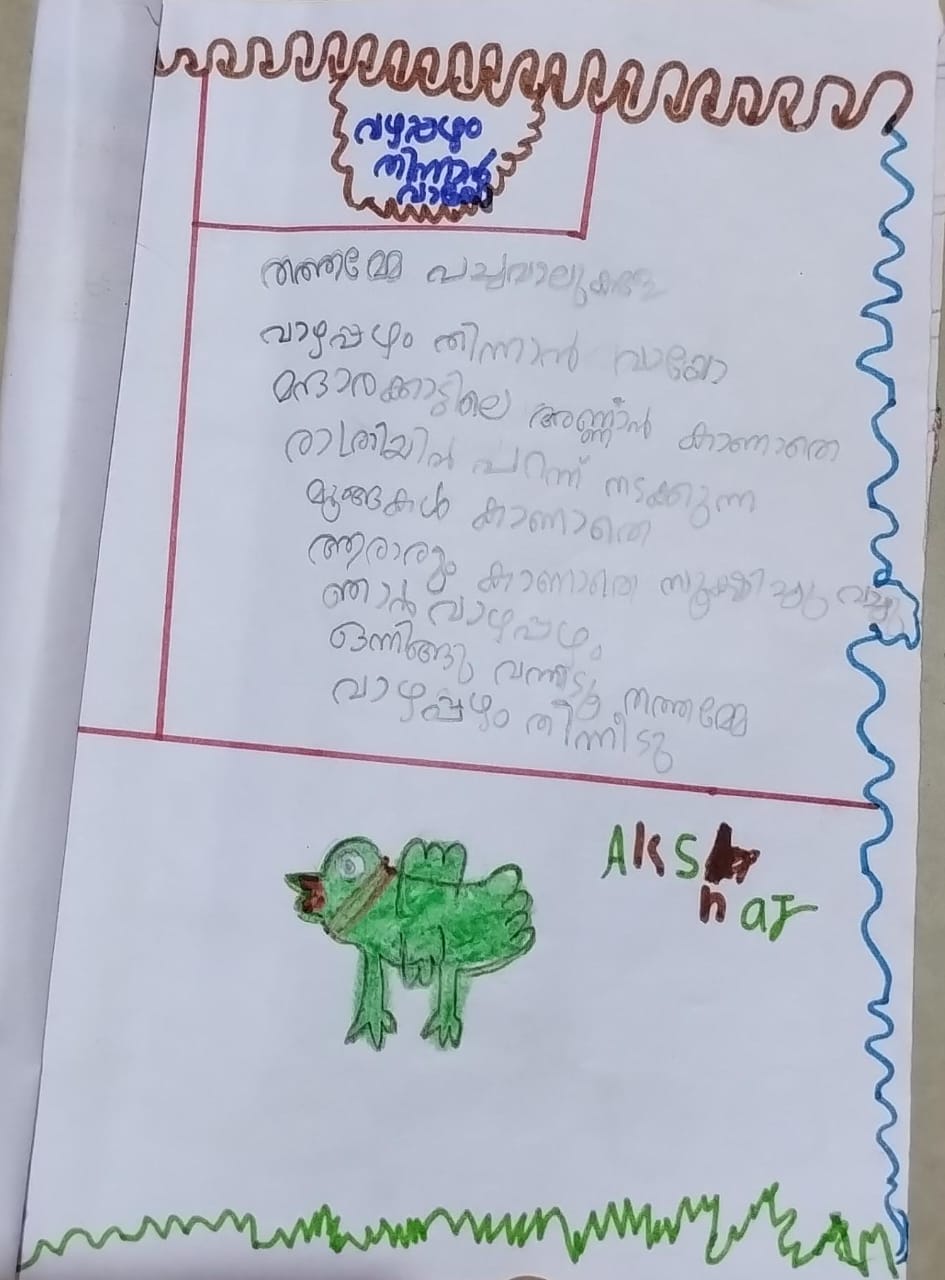 വഴപ്പഴം
തിന്നാൻ
വായോ
തത്തമ്മേ പച്ചവാലുകളേ
വാഴപ്പഴം തിന്നാൻ വായോ
മന്ദാരക്കാട്ടിലെ അണ്ണാൻ കാണാതെ
രാത്രിയിൽ പറന്ന് നടക്കുന്ന
മൂങ്ങകൾ കാണാതെ
ആരാരും കാണാതെ വച്ചു
ഞാൻ വാഴപ്പഴം
ഒന്നിങ്ങു വന്നീടൂ തത്തമ്മേ
വാഴപ്പഴം തിന്നീടു
Aks
haj